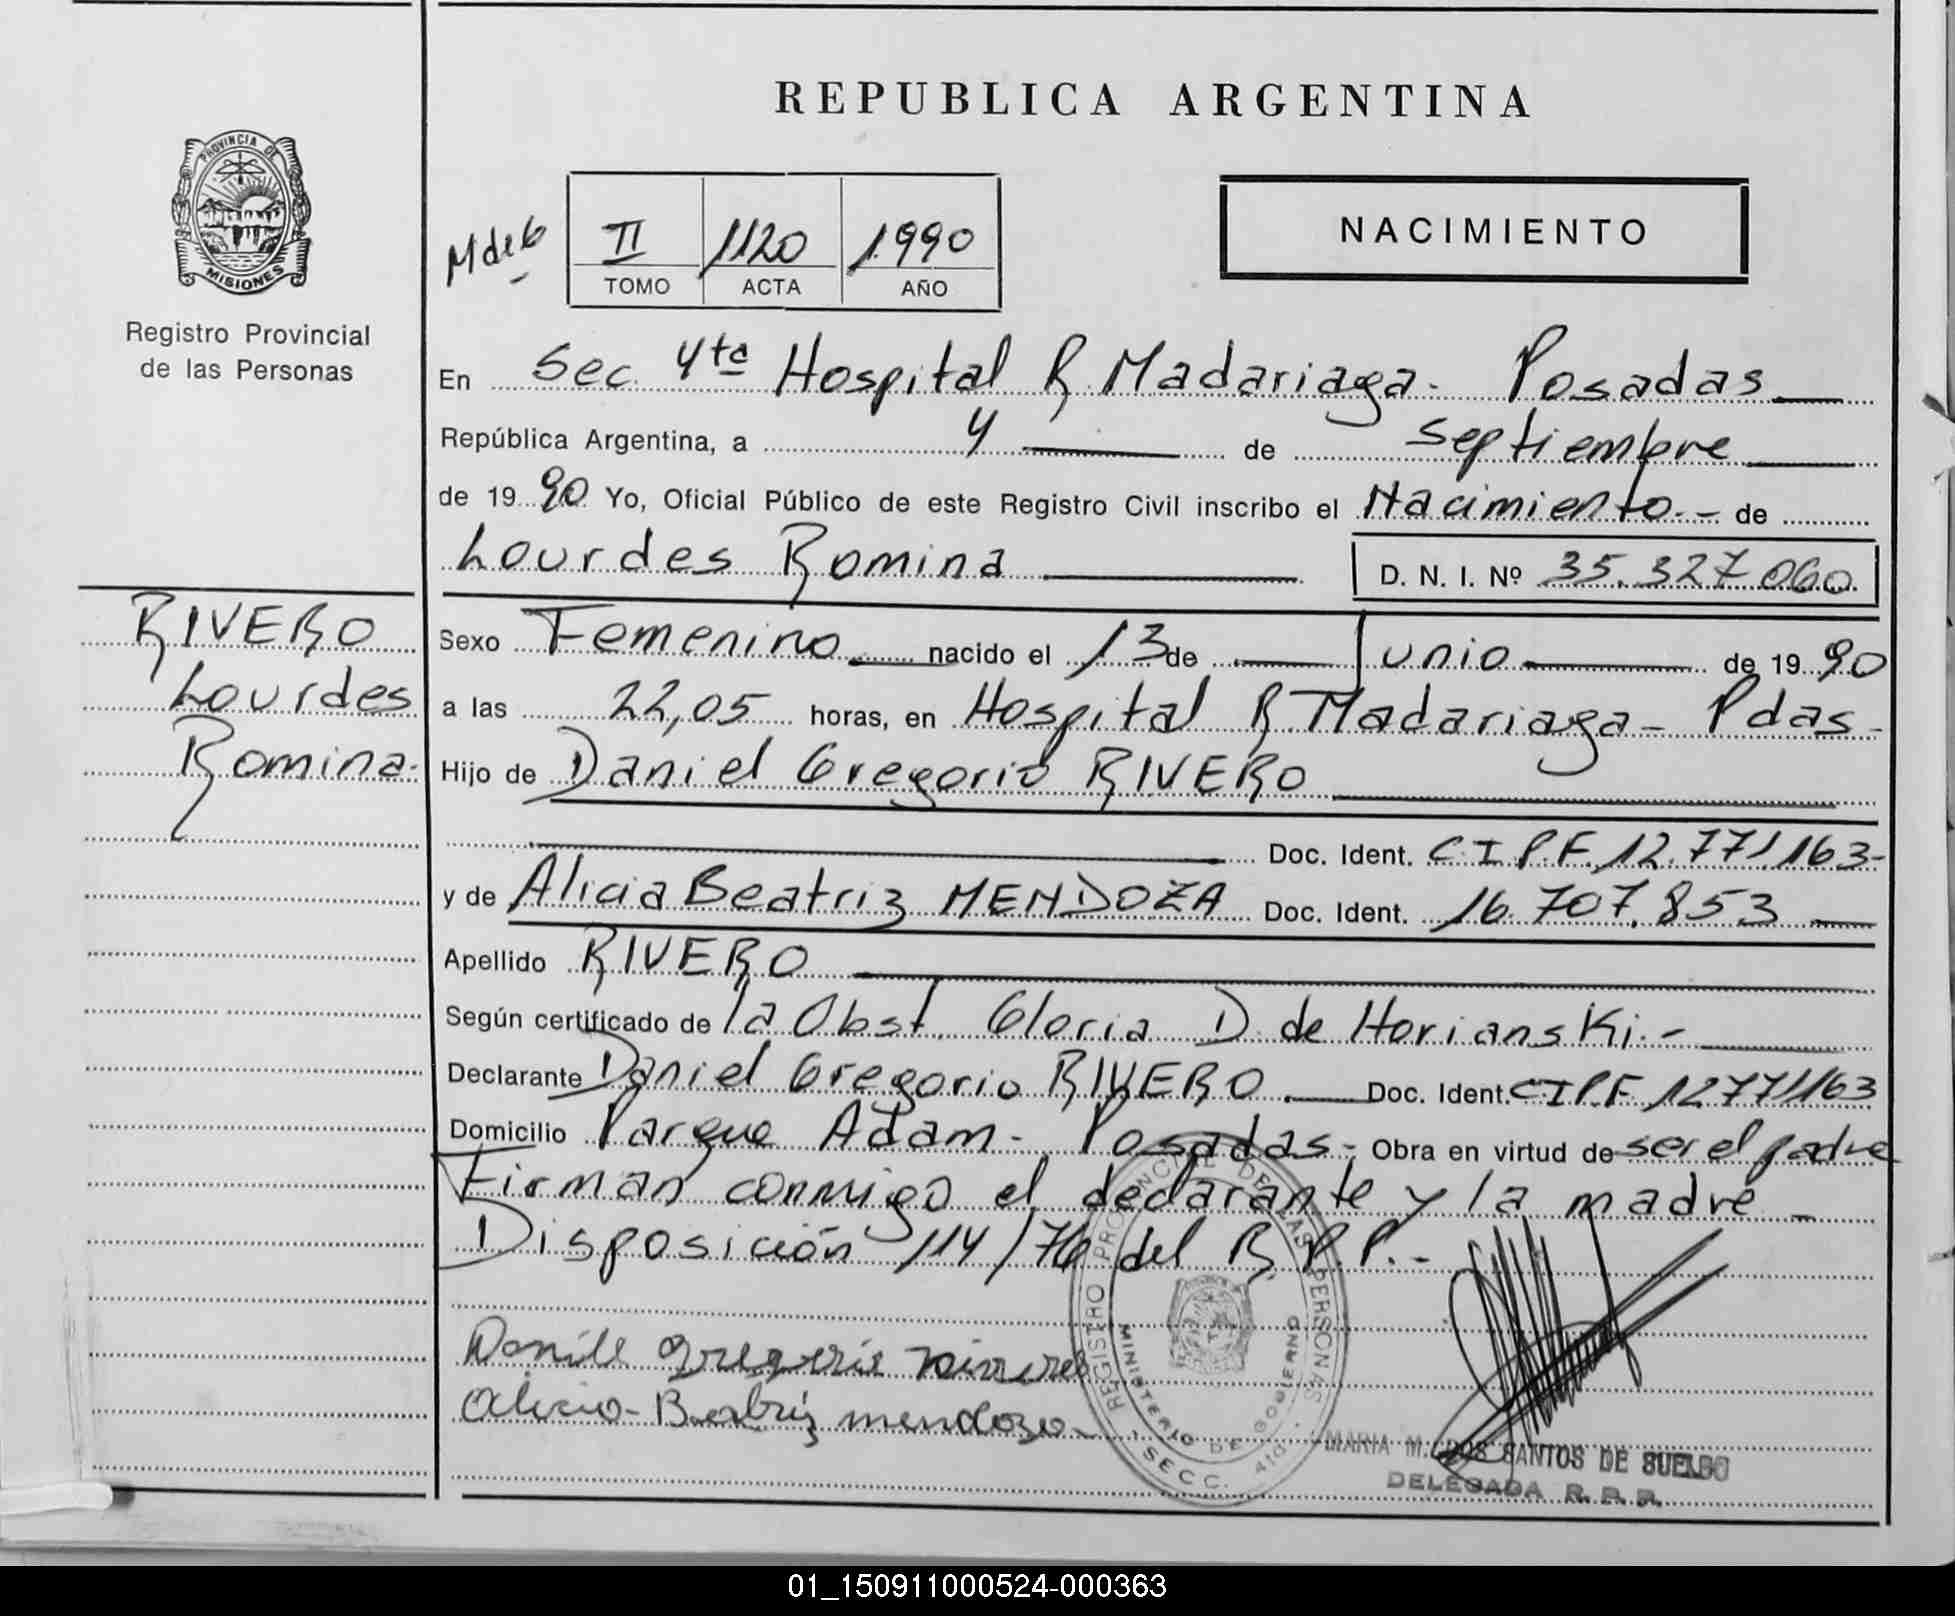 REPUBLICA ARGENTINA
PROVINCIA DE
MISIONES
Registro Provincial
de las Personas
M de 6
II 1120 1990
TOMO ACTA AÑO
NACIMIENTO
En Sec. 4ta Hospital R. Madariaga - Posadas
República Argentina, a 4 de septiembre
de 1990 Yo, Oficial Público de este Registro Civil inscribo el Nacimiento.- de
Lourdes Romina D. N. I. Nº 35.327.060
RIVERO
Lourdes
Romina.
Sexo Femenino nacido el 13 de Junio de 1990
a las 22,05 horas, en Hospital R. Madariaga - Pdas -
Hijo de Daniel Gregorio RIVERO
Doc. Ident. C.I.P.F. 12.771.163-
y de Alicia Beatriz MENDOZA Doc. Ident. 16.707.853
Apellido RIVERO
Según certificado de la Obst. Gloria D. de Horianski.-
Declarante Daniel Gregorio RIVERO Doc. Ident. CIPF 12771163
Domicilio Parque Adam - Posadas - Obra en virtud de ser el padre
Firman conmigo el declarante y la madre -
Disposición 114/76 del R.P.P.-
Alicia - Beatriz mendoza -
REGISTRO PROVINCIAL DE LAS PERSONAS
MINISTERIO DE GOBIERNO
SECC. 4ta.
MARIA M. DOS SANTOS DE SUELDO
DELEGADA R. P. P.
01_150911000524-000363